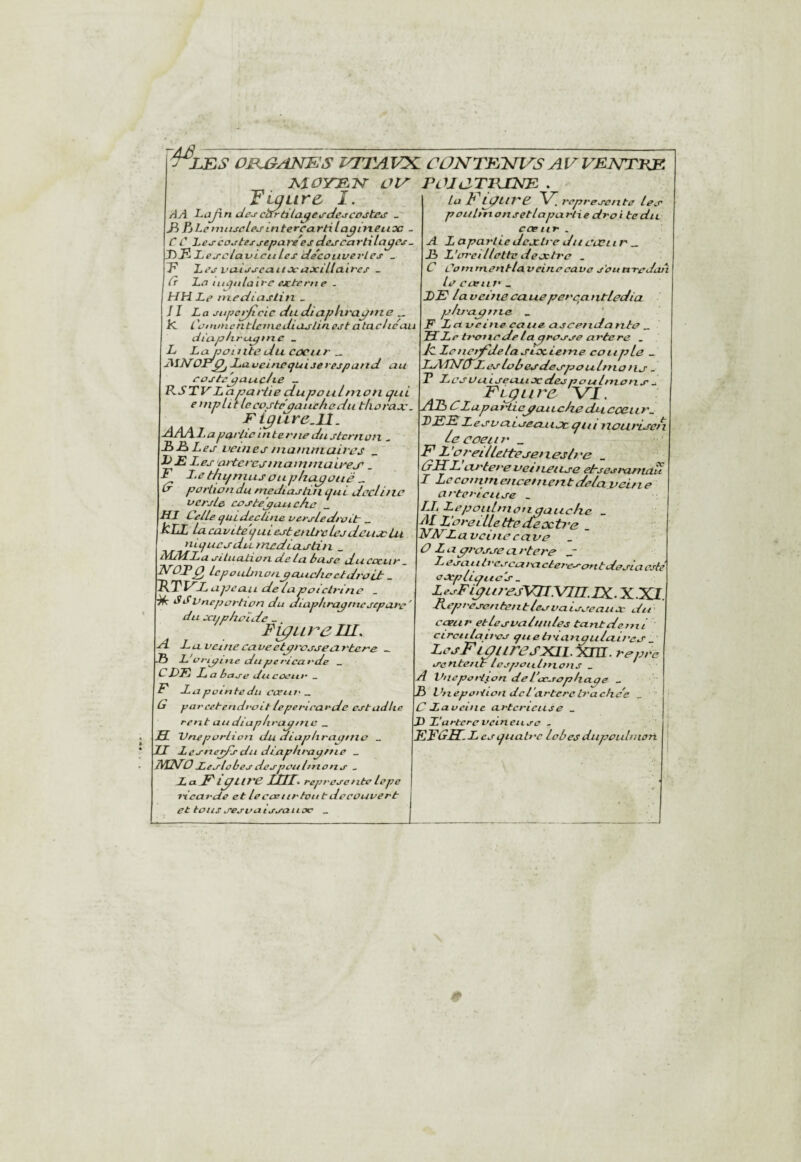 AB
LES ORGANES VITAVX CONTENVS AV VENTRE
MOYEN OV POICTRINE.
Figure I.
AA La fin des cartilages des costes
BB Le muscles intercartilagineux
CC Les costes separées des cartilages
DE Les clavicules découvertes
F Les vaisseaux axillaires
G La iugulaire externe
HH Le mediastin
II La superficie du diaphragme
K Comment le mediastin est ataché au
diaphragme
L La pointe du cœur
MNOPQ La veine qui se respand au
costé gauche
RSTV La partie du poulmon qui
emplit le costé gauche du thorax.
Figure II.
AAA La partie interne du sternon
BB Les veines mammaires
DE Les arteres mammaires
F Le thymus ou phagoué
G portion du mediastin qui decline
vers le costé gauche
HI Celle qui decline vers le droit
KLL la cavité qui est entre les deux tu
niques du mediastin
MMM La situation de la base du cœur
NOPQ le poulmon gauche et droit
RTV L apeau de la poictrine
* SS Vne portion du diaphragme separé
du xyphoide
Figure III.
A La veine cave et grosse artere
B L'origine du pericarde
CDE La base du cœur
F La pointe du cœur
G par cet endroit le pericarde est adhe
rent au diaphragme
H Vne portion du diaphragme
II Les nerfs du diaphragme
MNO Les lobes des poulmons
La Figure IIII. represente le pe
ricarde et le cœur tout decouvert
et tous ses vaissaux
La Figure V. represente les
poulmons et la partie droite du
cœur
A La partie dextre du cœur
B L'oreillette dextre
C Comment la veine cave s'ouvre dan
le cœur
DE la veine caue perçant le dia
phragme
F La veine caue ascendante
H Le tronc de la grosse artere
K Le nerf de la sixieme couple
LMNO Les lobes des poulmons
P Les vaiseaux des poulmons
Figure VI.
AB C La partie gauche du cœur
DEE Les vaiseaux qui nourisen
le coeur
F L'oreillette senestre
GH L'artere veineuse et ses ramaux
I Le commencement de la veine
arterieuse
LL Le poulmon gauche
M L'oreillette dextre
NN La veine cave
O La grosse artere
Les autres caracteres ont desia esté
expliqués
Les Figures VII. VIII. IX. X. XI.
Representent les vaisseaux du
cœur et les valuules tant demi
circulaires que triangulaires
Les Figures XII. XIII. repre
sentent les poulmons
A Vne portion de l'œsophage
B Vne portion de l'artere trachée
C La veine arterieuse
D L'artere veineuse
EFGH. Les quatre lobes du poulmon